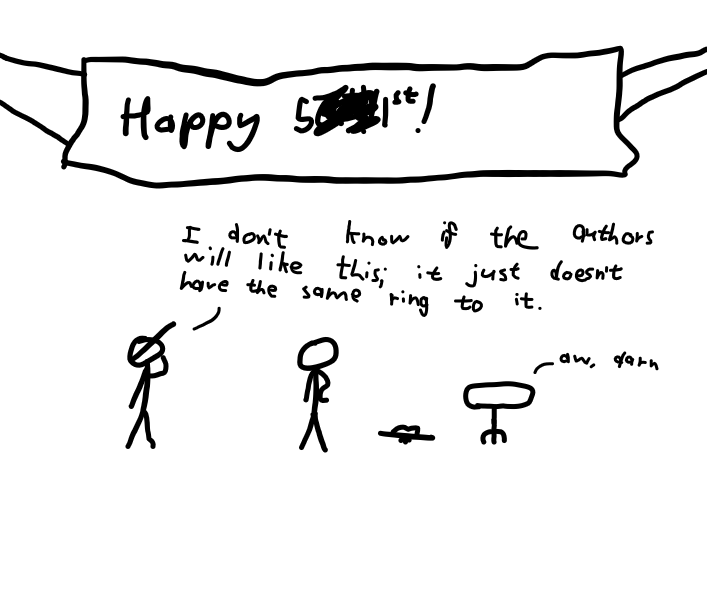 Happy 51st!
I don't know if the authors
will like this; it just doesn't
have the same ring to it.
aw, darn